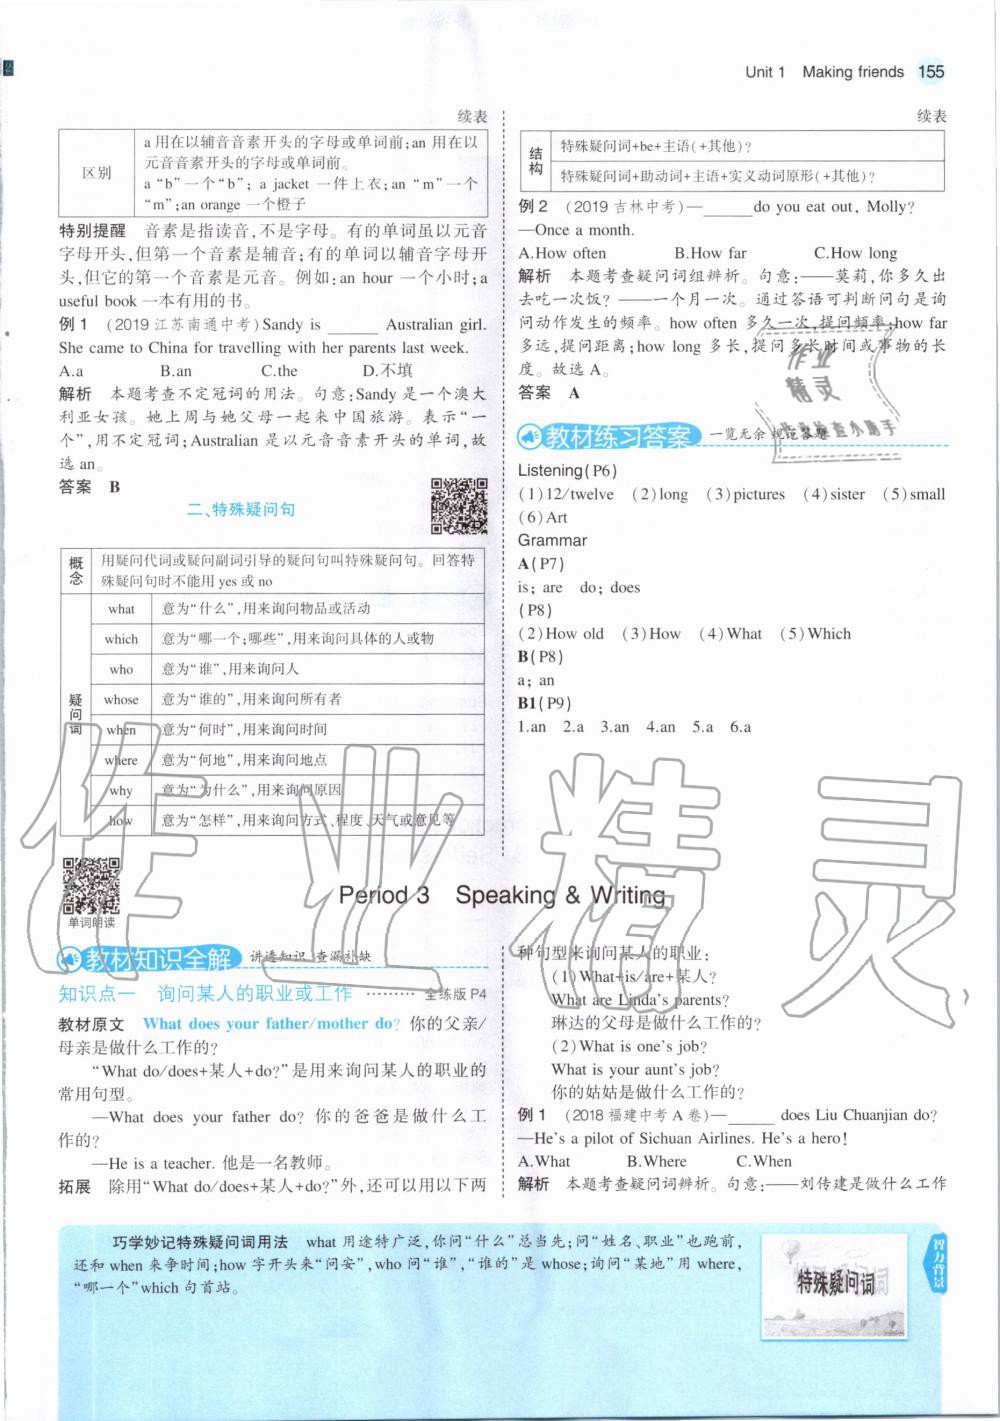 Unit 1 Making friends 155
续表
区别
a 用在以辅音音素开头的字母或单词前;an 用在以
元音音素开头的字母或单词前。
a “b”一个“b”; a jacket 一件上衣;an “m”一个
“m”;an orange 一个橙子
特别提醒 音素是指读音,不是字母。有的单词虽以元音
字母开头,但第一个音素是辅音;有的单词以辅音字母开
头,但它的第一个音素是元音。例如:an hour 一个小时;a
useful book 一本有用的书。
例 1 (2019 江苏南通中考)Sandy is ______ Australian girl.
She came to China for travelling with her parents last week.
A.a B.an C.the D.不填
解析 本题考查不定冠词的用法。句意:Sandy 是一个澳大
利亚女孩。她上周与她父母一起来中国旅游。表示“一
个”,用不定冠词;Australian 是以元音音素开头的单词,故
选 an。
答案 B
二、特殊疑问句
概念
用疑问代词或疑问副词引导的疑问句叫特殊疑问句。回答特
殊疑问句时不能用 yes 或 no
疑问词
what 意为“什么”,用来询问物品或活动
which 意为“哪一个;哪些”,用来询问具体的人或物
who 意为“谁”,用来询问人
whose 意为“谁的”,用来询问所有者
when 意为“何时”,用来询问时间
where 意为“何地”,用来询问地点
why 意为“为什么”,用来询问原因
how 意为“怎样”,用来询问方式、程度、天气或意见等
续表
结构
特殊疑问词+be+主语(+其他)?
特殊疑问词+助动词+主语+实义动词原形(+其他)?
例 2 (2019 吉林中考)—______do you eat out, Molly?
—Once a month.
A.How often B.How far C.How long
解析 本题考查疑问词组辨析。句意:——莫莉,你多久出
去吃一次饭? ——一个月一次。通过答语可判断问句是询
问动作发生的频率。how often 多久一次,提问频率;how far
多远,提问距离;how long 多长,提问多长时间或事物的长
度。故选 A。
答案 A
教材练习答案 一览无余 规范答题
Listening(P6)
(1)12/twelve (2)long (3)pictures (4)sister (5)small
(6)Art
Grammar
A(P7)
is; are do; does
(P8)
(2)How old (3)How (4)What (5)Which
B(P8)
a; an
B1(P9)
1.an 2.a 3.an 4.an 5.a 6.a
作业精灵
作业
精灵
单词朗读
Period 3 Speaking & Writing
教材知识全解 讲透知识 查漏补缺
知识点一 询问某人的职业或工作 ……… 全练版 P4
教材原文 What does your father/mother do? 你的父亲/
母亲是做什么工作的?
“What do/does+某人+do?”是用来询问某人的职业的
常用句型。
—What does your father do? 你的爸爸是做什么工
作的?
—He is a teacher. 他是一名教师。
拓展 除用“What do/does+某人+do?”外,还可以用以下两
种句型来询问某人的职业:
(1)What+is/are+某人?
What are Linda's parents?
琳达的父母是做什么工作的?
(2)What is one's job?
What is your aunt's job?
你的姑姑是做什么工作的?
例 1 (2018 福建中考 A 卷)—______ does Liu Chuanjian do?
—He's a pilot of Sichuan Airlines. He's a hero!
A.What B.Where C.When
解析 本题考查疑问词辨析。句意:——刘传建是做什么工作
巧学妙记特殊疑问词用法 what 用途特广泛,你问“什么”总当先;问“姓名、职业”也跑前,
还和 when 来争时间;how 字开头来“问安”,who 问“谁”,“谁的”是 whose;询问“某地”用 where,
“哪一个”which 句首站。
特殊疑问词
智力背景